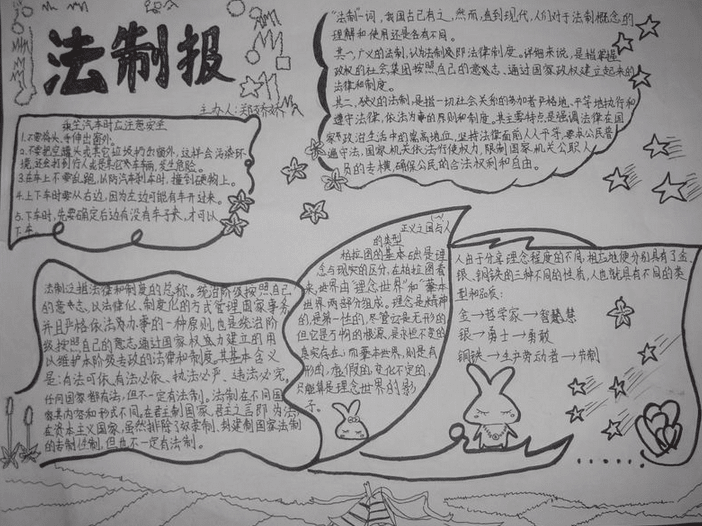 法制报
主办人:郑娇娇
乘坐汽车时应注意安全
1.不要将头、手伸出窗外。
2.不要把空罐头或其它垃圾扔出窗外,这样会污染环
境,还会打到行人或是其它汽车车辆,发生危险。
3.在车上不要乱跑,以防汽车刹车时,撞到硬物上。
4.上下车时要从右边,因为左边可能有车开过来。
5.下车时,先要确定后边有没有车子来,才可以
下车。
"法制"一词,我国古已有之,然而,直到现代,人们对于法制概念的
理解和使用还是各有不同。
其一,广义的法制,认为法制即法律制度。详细来说,是指掌握
政权的社会集团按照自己的意志,通过国家政权建立起来的
法律和制度。
其二,狭义的法制,是指一切社会关系的参加者严格地、平等地执行和
遵守法律,依法办事的原则和制度。其主要特点是强调法律在国
家政治生活中的崇高地位,坚持法律面前人人平等,要求公民普
遍守法,国家机关依法行使权力,限制国家机关公职人
员的专横,确保公民的合法权利和自由。
法制过程法律和制度的总称。统治阶级按照自己
的意志,以法律化、制度化的方式管理国家事务,
并且严格依法办事的一种原则,也是统治阶
级按照自己的意志通过国家权力建立的用
以维护本阶级专政的法律和制度,其基本含义
是:有法可依、有法必依、执法必严、违法必究,
任何国家都有法,但不一定有法制。法制在不同国
家其内容和形式不同,在君主制国家,君主之言即为法,
在资本主义国家,虽然排除了奴隶制、封建制国家法制
的专制性制,但也不一定有法制。
正义之国与人
的类型
柏拉图的基本命题是理
念与现实的区分,在柏拉图看
来,世界由"理念世界"和"基本
世界"两部分组成。理念是精神
的,是第一性的,尽管它是无形的
但它是万物的根源,是永恒不变的
真实存在;而基本世界,则是有
形的,虚假的,变化不定的,
只能算是理念世界的影
子。
人由于分享理念程度的不同,相应地便分别具有了金、
银、铜铁的三种不同的性质,人也就具有不同的类
型和品质:
金→哲学家→智慧
银→勇士→勇敢
铜铁→生产劳动者→节制